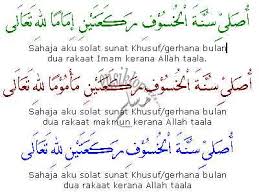 أُصَلِّيْ سُنَّةَ الْخُسُوْفِ رَكْعَتَيْنِ إِمَامًا لِلّٰهِ تَعَالَى
Sahaja aku solat sunat Khusuf/gerhana bulan
dua rakaat Imam kerana Allah taala.
أُصَلِّيْ سُنَّةَ الْخُسُوْفِ رَكْعَتَيْنِ مَأْمُوْمًا لِلّٰهِ تَعَالَى
Sahaja aku solat sunat Khusuf/gerhana bulan
dua rakaat makmun kerana Allah taala
أُصَلِّيْ سُنَّةَ الْخُسُوْفِ رَكْعَتَيْنِ لِلّٰهِ تَعَالَى
Sahaja aku solat sunat Khusuf/gerhana bulan
dua rakaat kerana Allah taala